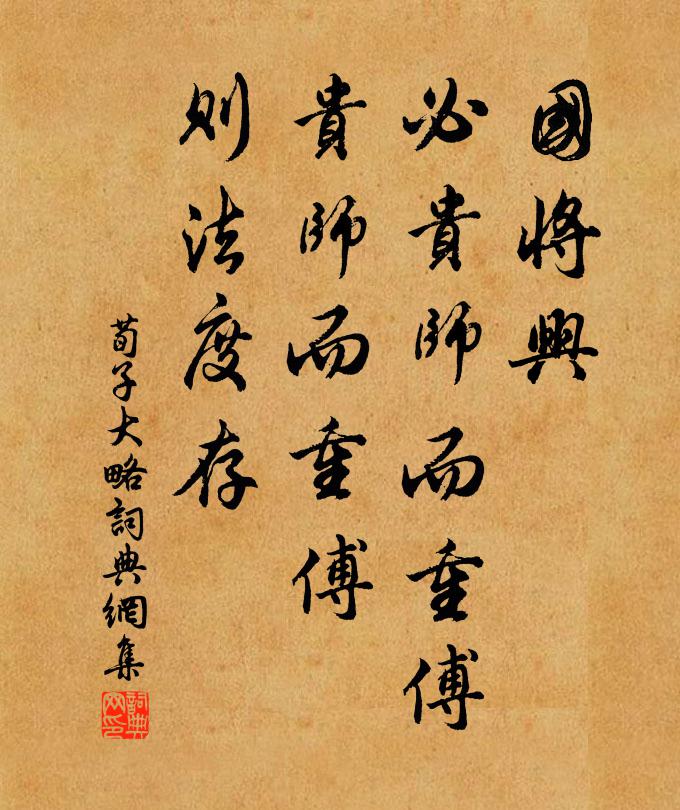 國將興
必貴師而重傅
貴師而重傅
則法度存
荀子大略詞典網集
詞典网印